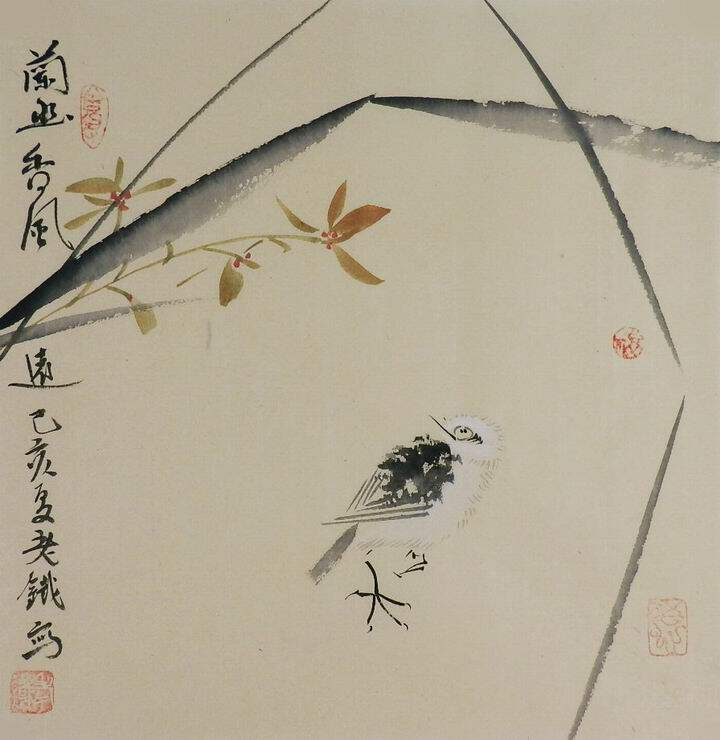 蘭幽香風
遠 己亥夏老鐵寫